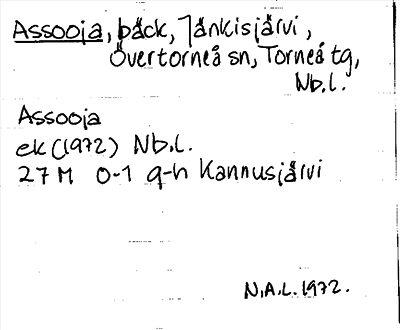 Assooja, bäck, Jänkisjärvi,
Övertorneå sn, Torneå tg,
Nb.l.
Assooja
ek (1972) Nb.l.
27 M 0-1 g-h Kannusjärvi
N.A.L. 1972.